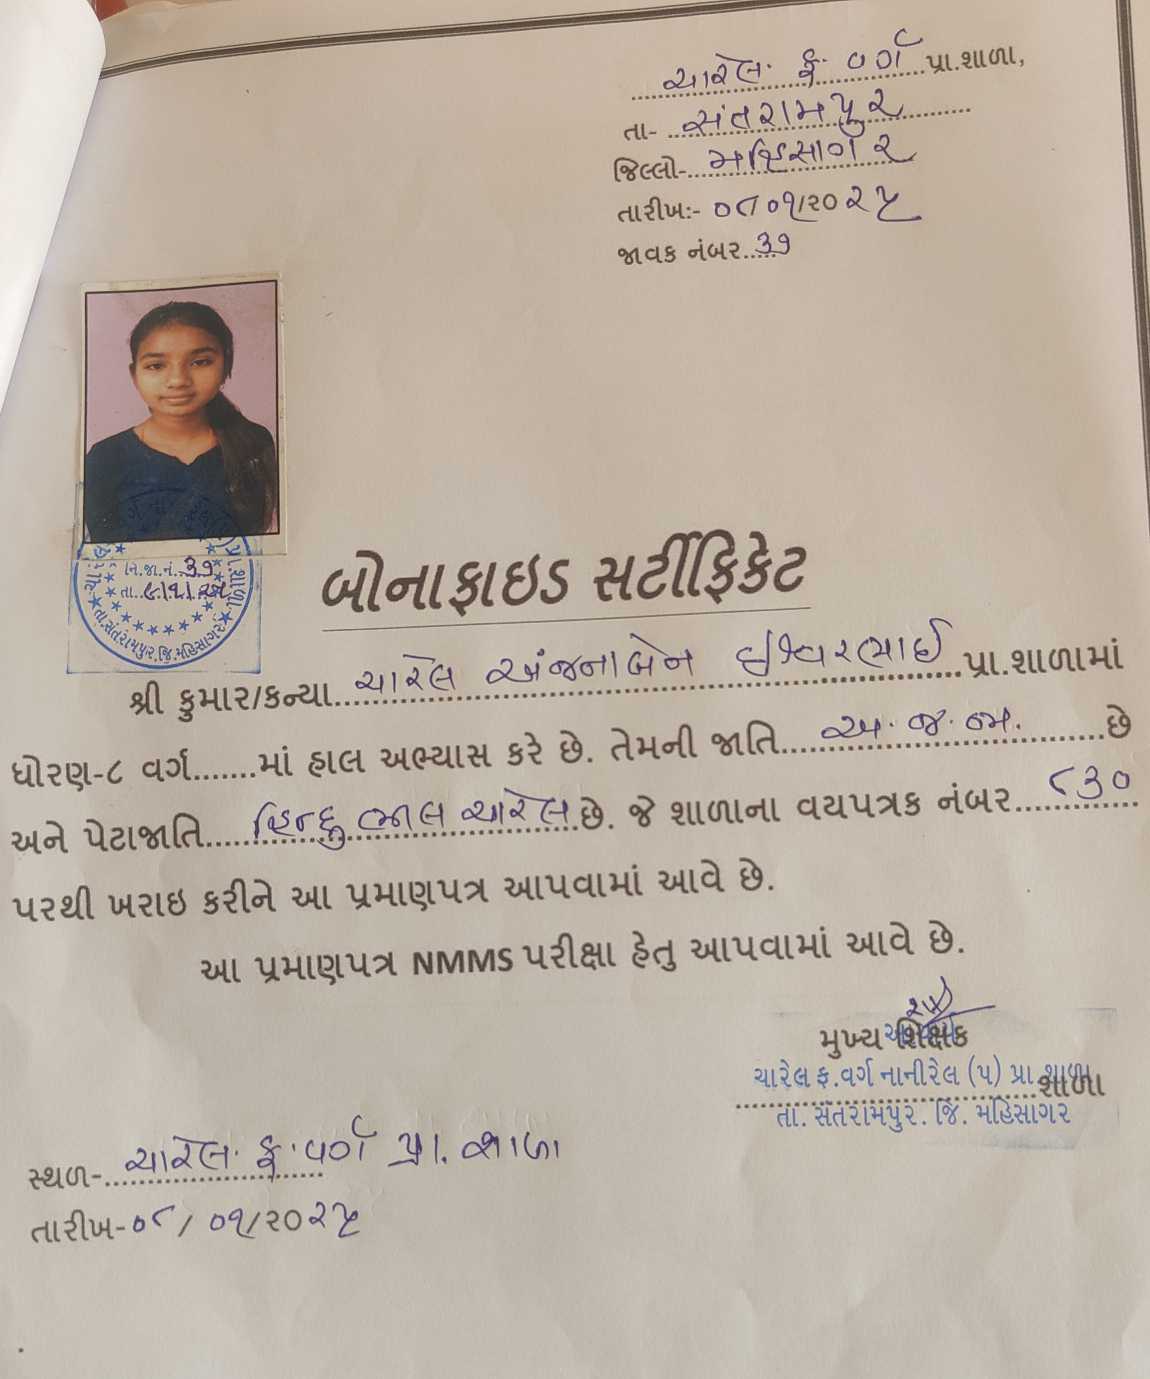 ચારેલ ફ. વર્ગ પ્રા.શાળા,
તા- સંતરામપુર
જિલ્લો- મહિસાગર
તારીખ:- ૦૮ ૦૧/૨૦૨૫
જાવક નંબર...૩૭
નિ.જા.નં. ૩૭
તા.
તા.સંતરામપુર.જિ.મહિસાગર
બોનાફાઇડ સર્ટીફિકેટ
શ્રી કુમાર/કન્યા ચારેલ અંજનાબેન ઈશ્વરભાઈ પ્રા.શાળામાં
ધોરણ-૮ વર્ગ.......માં હાલ અભ્યાસ કરે છે. તેમની જાતિ અ.જ.જા. છે
અને પેટાજાતિ હિન્દુ ભીલ ચારેલ છે. જે શાળાના વયપત્રક નંબર ૮૩૦
પરથી ખરાઇ કરીને આ પ્રમાણપત્ર આપવામાં આવે છે.
આ પ્રમાણપત્ર NMMS પરીક્ષા હેતુ આપવામાં આવે છે.
મુખ્ય શિક્ષક
ચારેલ ફ.વર્ગ નાનીરેલ (પ) પ્રા શાળા
શાળા
તા. સંતરામપુર. જિ. મહિસાગર
સ્થળ- ચારેલ. ફ. વર્ગ પ્રા. શાળા
તારીખ-૦૮/ ૦૧/૨૦૨૫